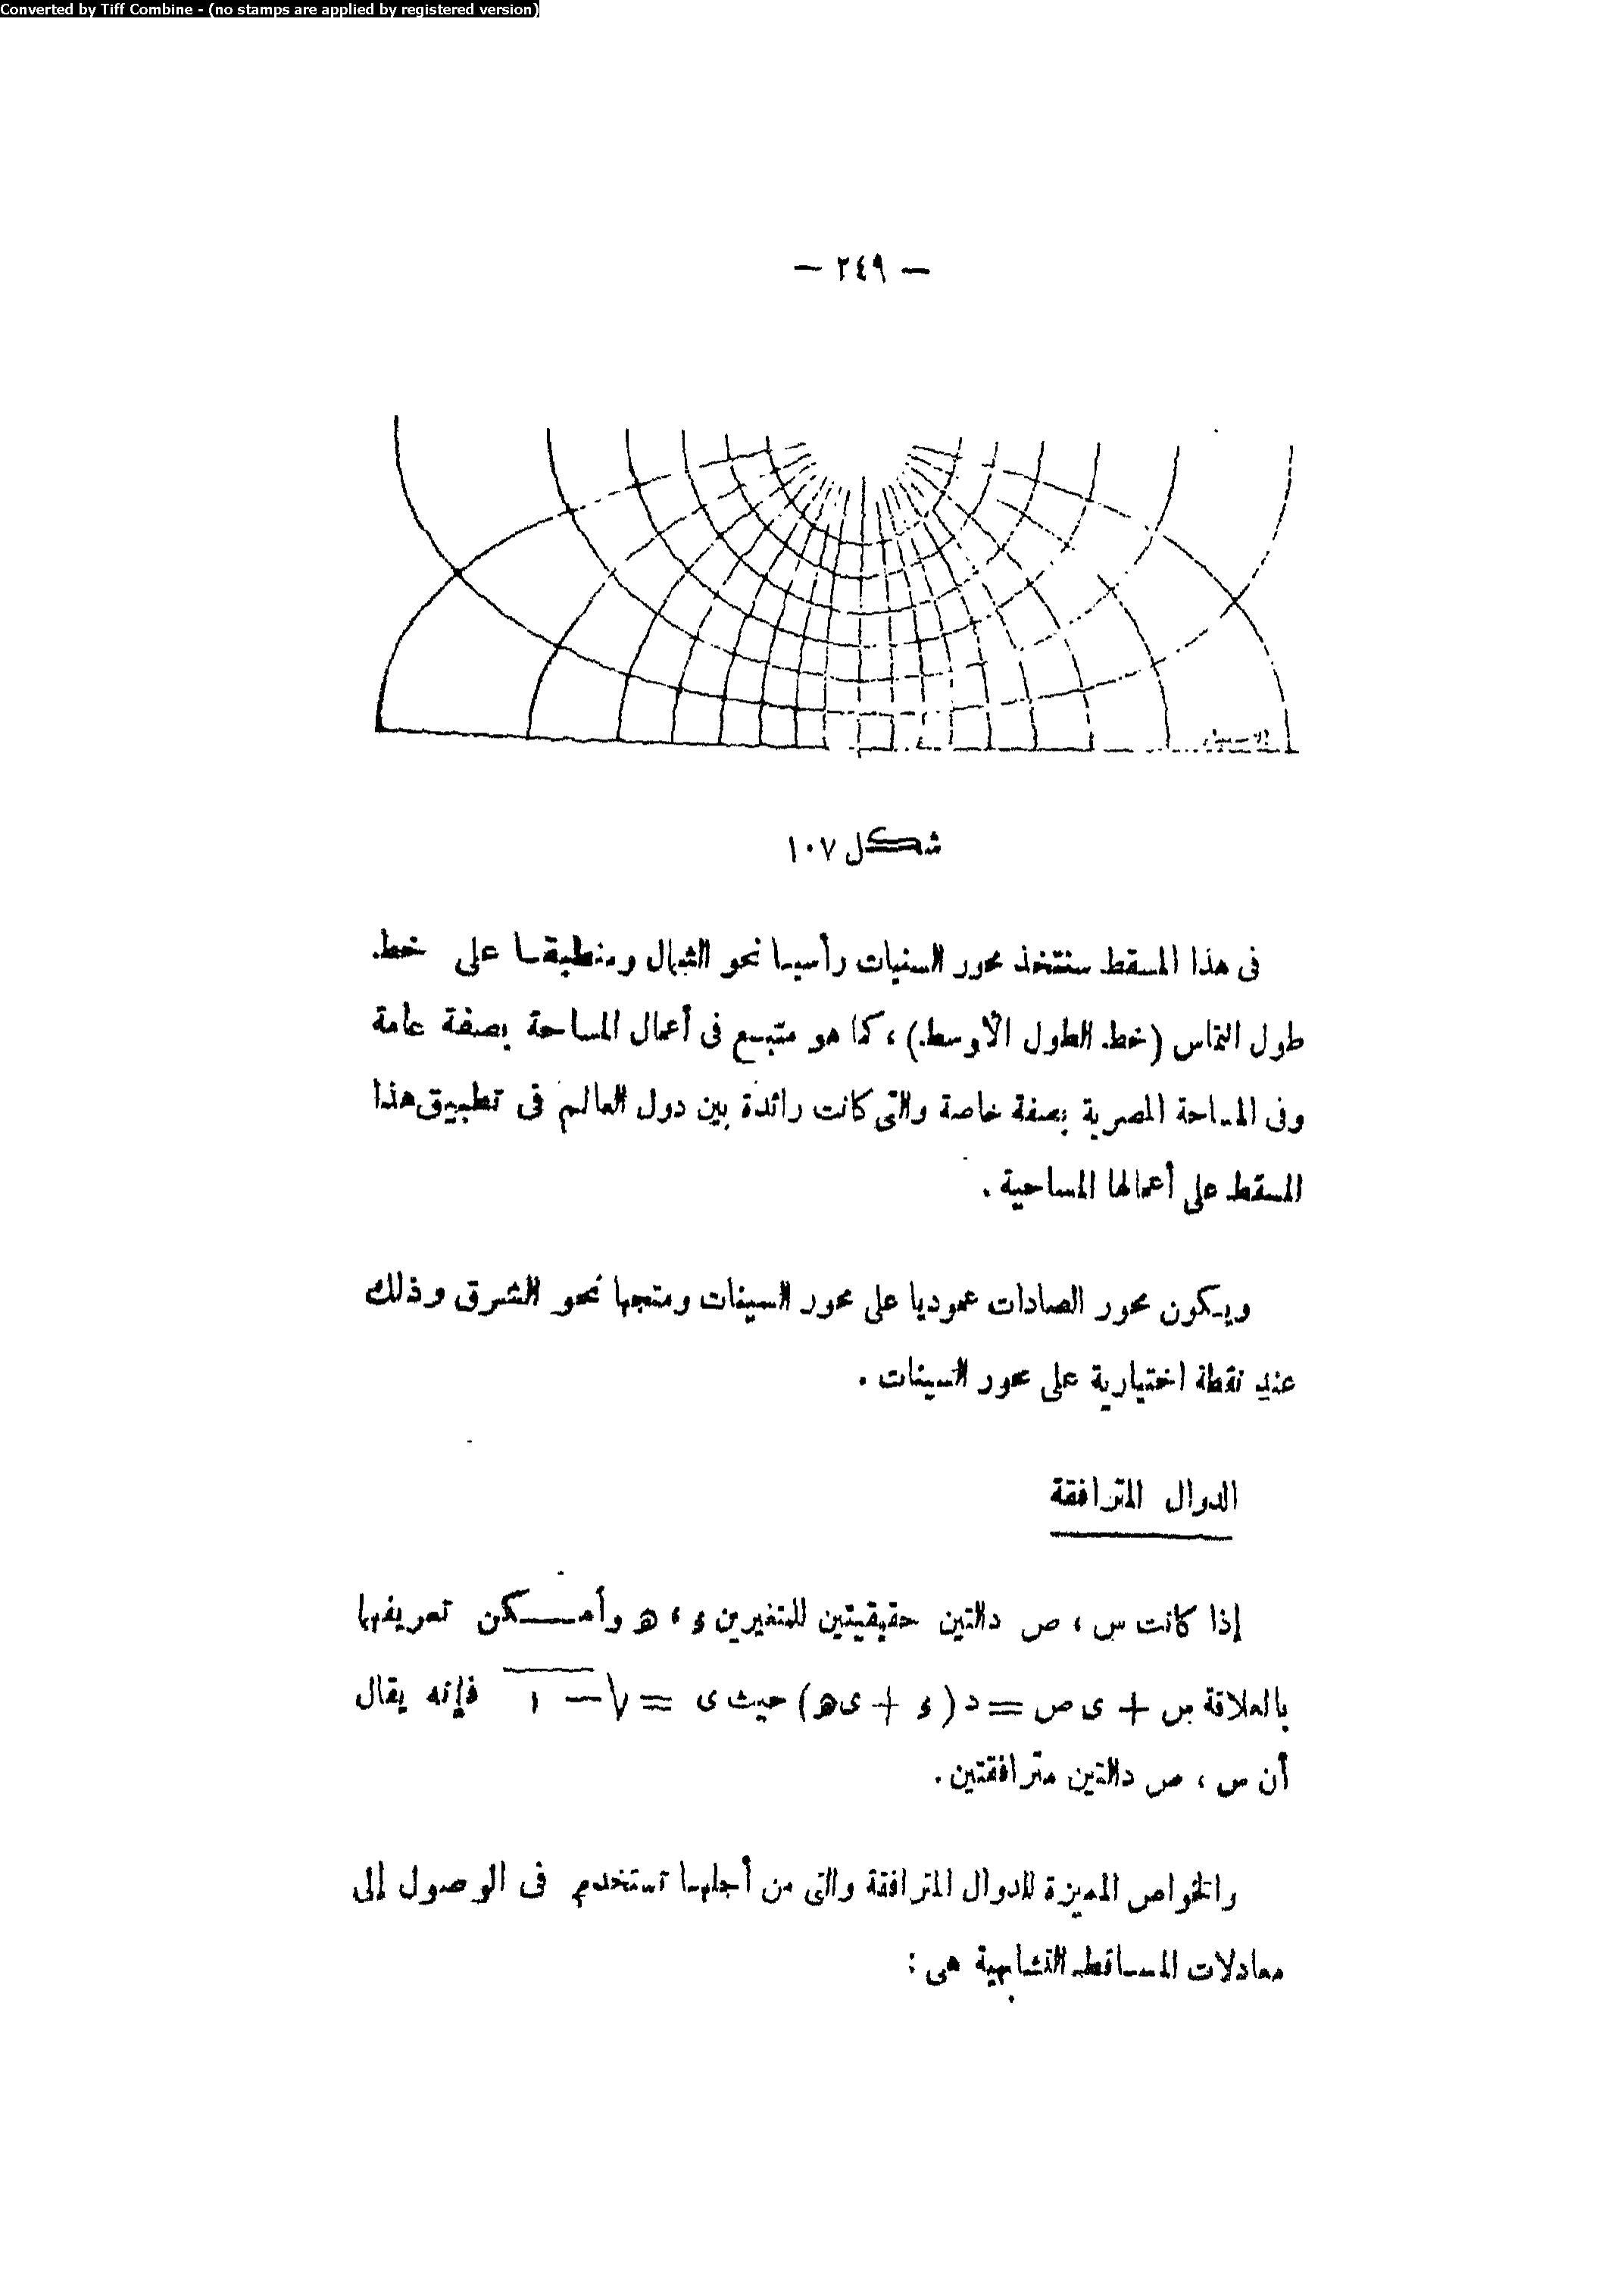 Converted by Tiff Combine - (no stamps are applied by registered version)
— ٢٤٩ —
شكل ١٠٧
فى هذا المسقط سنتخذ محور السنيات رأسيا نحو الشمال ومنطبقا على خط
طول التماس (خط الطول الأوسط) ، كما هو متبع فى أعمال المساحة بصفة عامة
وفى المساحة المصرية بصفة خاصة والتى كانت رائدة بين دول العالم فى تطبيق هذا
المسقط على أعمالها المساحية .
ويكون محور الصادات عموديا على محور السينات ومتجها نحو الشرق وذلك
عند نقطة اختيارية على محور السينات .
الدوال المترافقة
إذا كانت س ، ص دالتين حقيقيتين للمتغيرين ء ، ه وأمكن تعريفها
بالعلاقة س + ى ص = د (ء + ى ه) حيث ى = √− ١ فإنه يقال
أن س ، ص دالتين مترافقتين .
والخواص المميزة للدوال المترافقة والتى من أجلها تستخدم فى الوصول إلى
معادلات المساقط التشابهية هى :